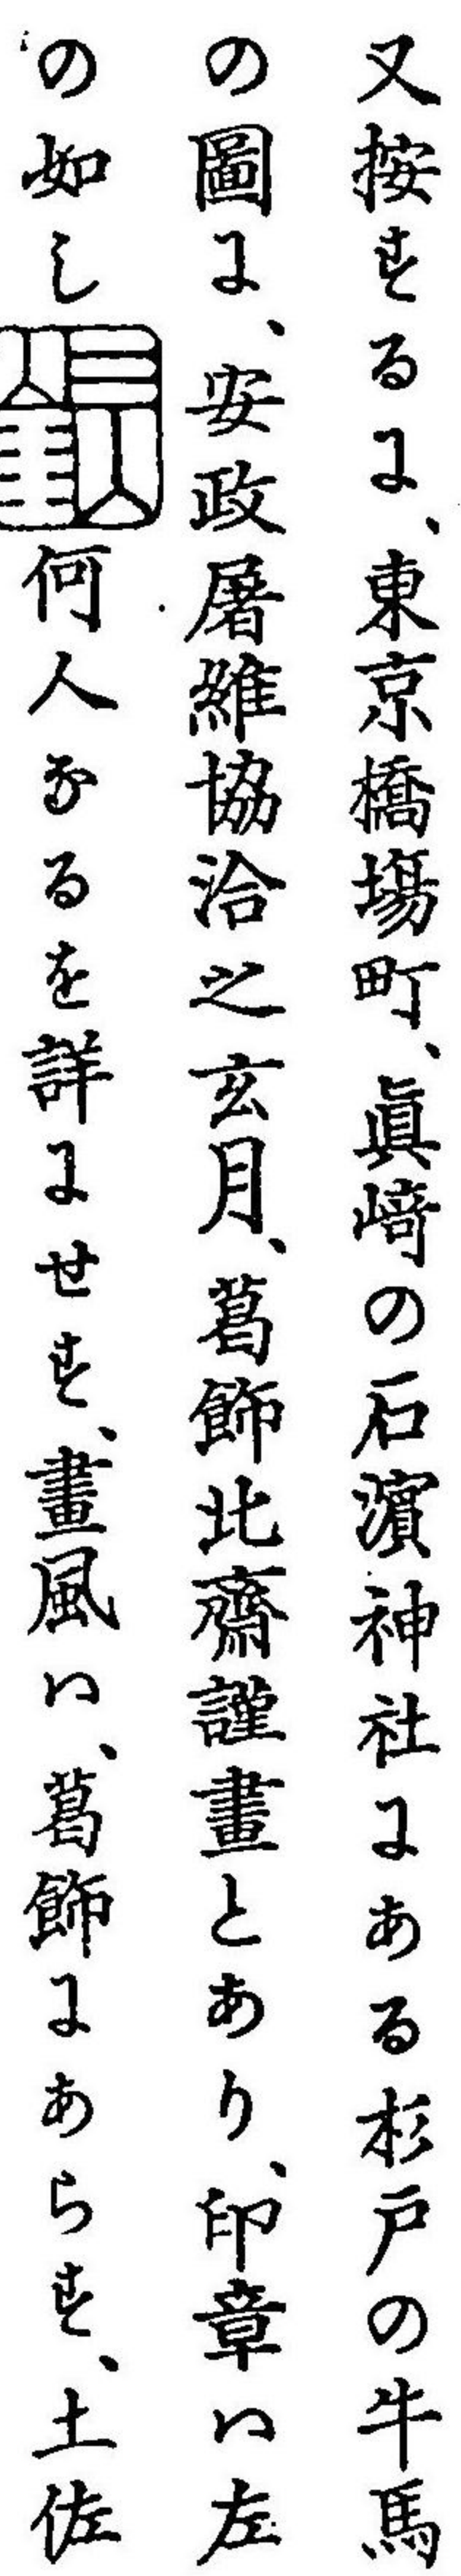 又按するに、東京橋塲町、眞﨑の石濵神社にある杉戸の牛馬
の圖に、安政屠維協洽之玄月、葛飾北齋謹畫とあり、印章ハ左
の如し何人なるを詳にせす、畫風ハ、葛飾にあらす、土佐